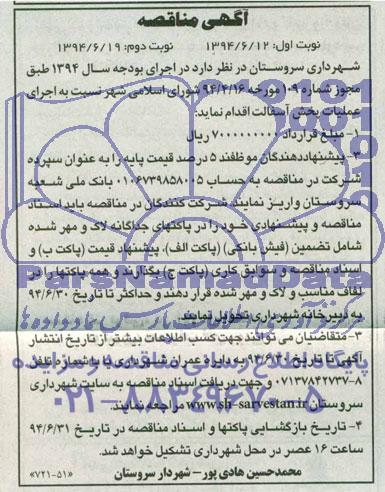 آگهی مناقصه
نوبت اول: ۱۳۹۴/۶/۱۲ نوبت دوم: ۱۳۹۴/۶/۱۹
شهرداری سروستان در نظر دارد در اجرای بودجه سال ۱۳۹۴ طبق
مجوز شماره ۱۰۹ مورخه ۹۴/۴/۱۶ شورای اسلامی شهر نسبت به اجرای
عملیات پخش آسفالت اقدام نماید:
۱- مبلغ قرارداد ۷۰۰۰۰۰۰۰۰۰ ریال
۲- پیشنهاددهندگان موظفند ۵ درصد قیمت پایه را به عنوان سپرده
شرکت در مناقصه به حساب ۰۱۰۶۷۳۹۸۵۸۰۰۵ بانک ملی شعبه
سروستان واریز نمایند. شرکت کنندگان در مناقصه باید اسناد
مناقصه و پیشنهادی خود را در پاکتهای جداگانه لاک و مهر شده
شامل تضمین (فیش بانکی) (پاکت الف)، پیشنهاد قیمت (پاکت ب) و
اسناد مناقصه و سوابق کاری (پاکت ج) بگذارند و همه پاکتها را در
لفاف مناسب و لاک و مهر شده قرار دهند و حداکثر تا تاریخ ۹۴/۶/۳۰
به دبیرخانه شهرداری تحویل نمایند.
۳- متقاضیان می توانند جهت کسب اطلاعات بیشتر از تاریخ انتشار
آگهی تا تاریخ ۹۴/۶/۳۰ به دایره عمران شهرداری یا با شماره تلفن
۰۷۱۳۷۸۴۲۷۳۷-۸ و جهت دریافت اسناد مناقصه به سایت شهرداری
سروستان www.sh-sarvestan.ir مراجعه نمایند.
۴- تاریخ بازگشایی پاکتها و اسناد مناقصه در تاریخ ۹۴/۶/۳۱
ساعت ۱۶ عصر در محل شهرداری تشکیل خواهد شد.
محمدحسین هادی پور- شهردار سروستان
«۷۲۱-۵۱»
ParsNamadData
پایگاه اطلاع رسانی مناقصه و مزایده
۰۲۱-۸۸۳۴۹۶۷۰-۵